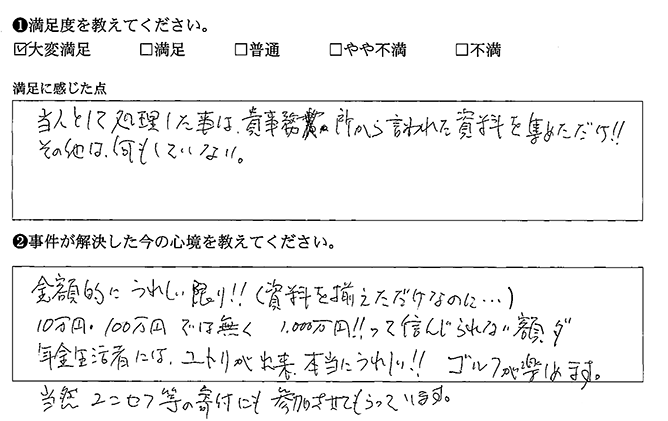 ❶満足度を教えてください。
☑大変満足 □満足 □普通 □やや不満 □不満
満足に感じた点
当人として処理した事は、貴事務所から言われた資料を集めただけ!!
その他は、何もしていない。
❷事件が解決した今の心境を教えてください。
金額的にうれしい限り!!(資料を揃えただけなのに…)
10万円・100万円では無く 1,000万円!!って信じられない額ダ
年金生活者には、ユトリが出来、本当にうれしい!! ゴルフが楽しめます。
当然ユニセフ等の寄付にも参加させてもらっています。